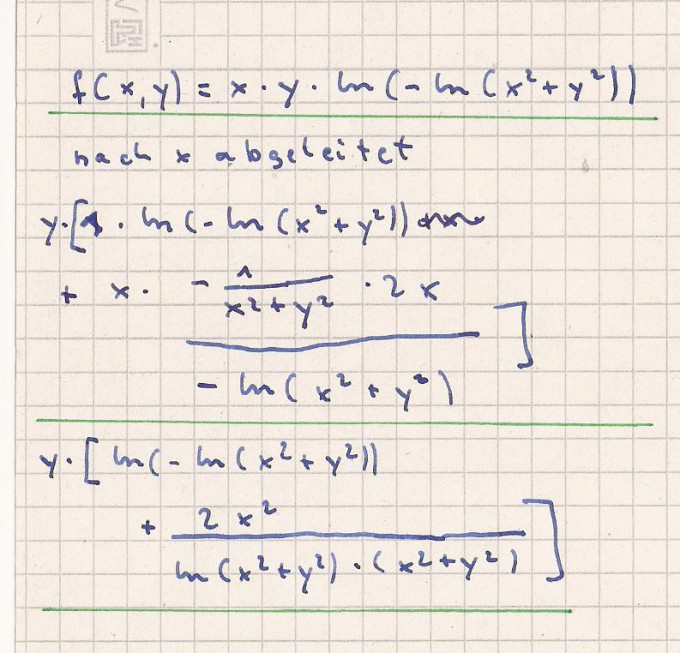 f(x,y) = x · y · ln(-ln(x²+y²))
nach x abgeleitet
y·[1 · ln(-ln(x²+y²))
+ x · - 1/(x²+y²) · 2x
- ln(x²+y²) ]
y·[ln(-ln(x²+y²))
+ 2x²
ln(x²+y²)·(x²+y²) ]